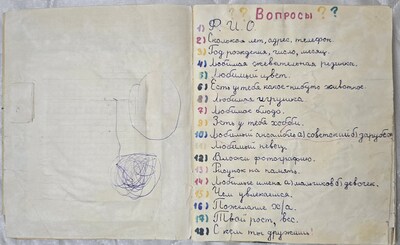 ? ? Вопросы ? ?
1) Ф. И. О
2) Сколько лет, адрес, телефон.
3) Год рождения, число, месяц.
4) Любимая жевательная резинка.
5) Любимый цвет.
6) Есть у тебя какое-нибудь животное.
7) Любимая игрушка
8) Любимое блюдо.
9) Есть у тебя хобби.
10) Любимый ансамбль а) советский б) заруб
11) Любимый певец.
12) Вклейки фотографию.
13) Рисунок на память.
14) Любимые имена а) мальчиков б) девочек.
15) Чем увлекаешся.
16) Пожелание х/а.
17) Твой рост, вес.
18) С кем ты дружишь!